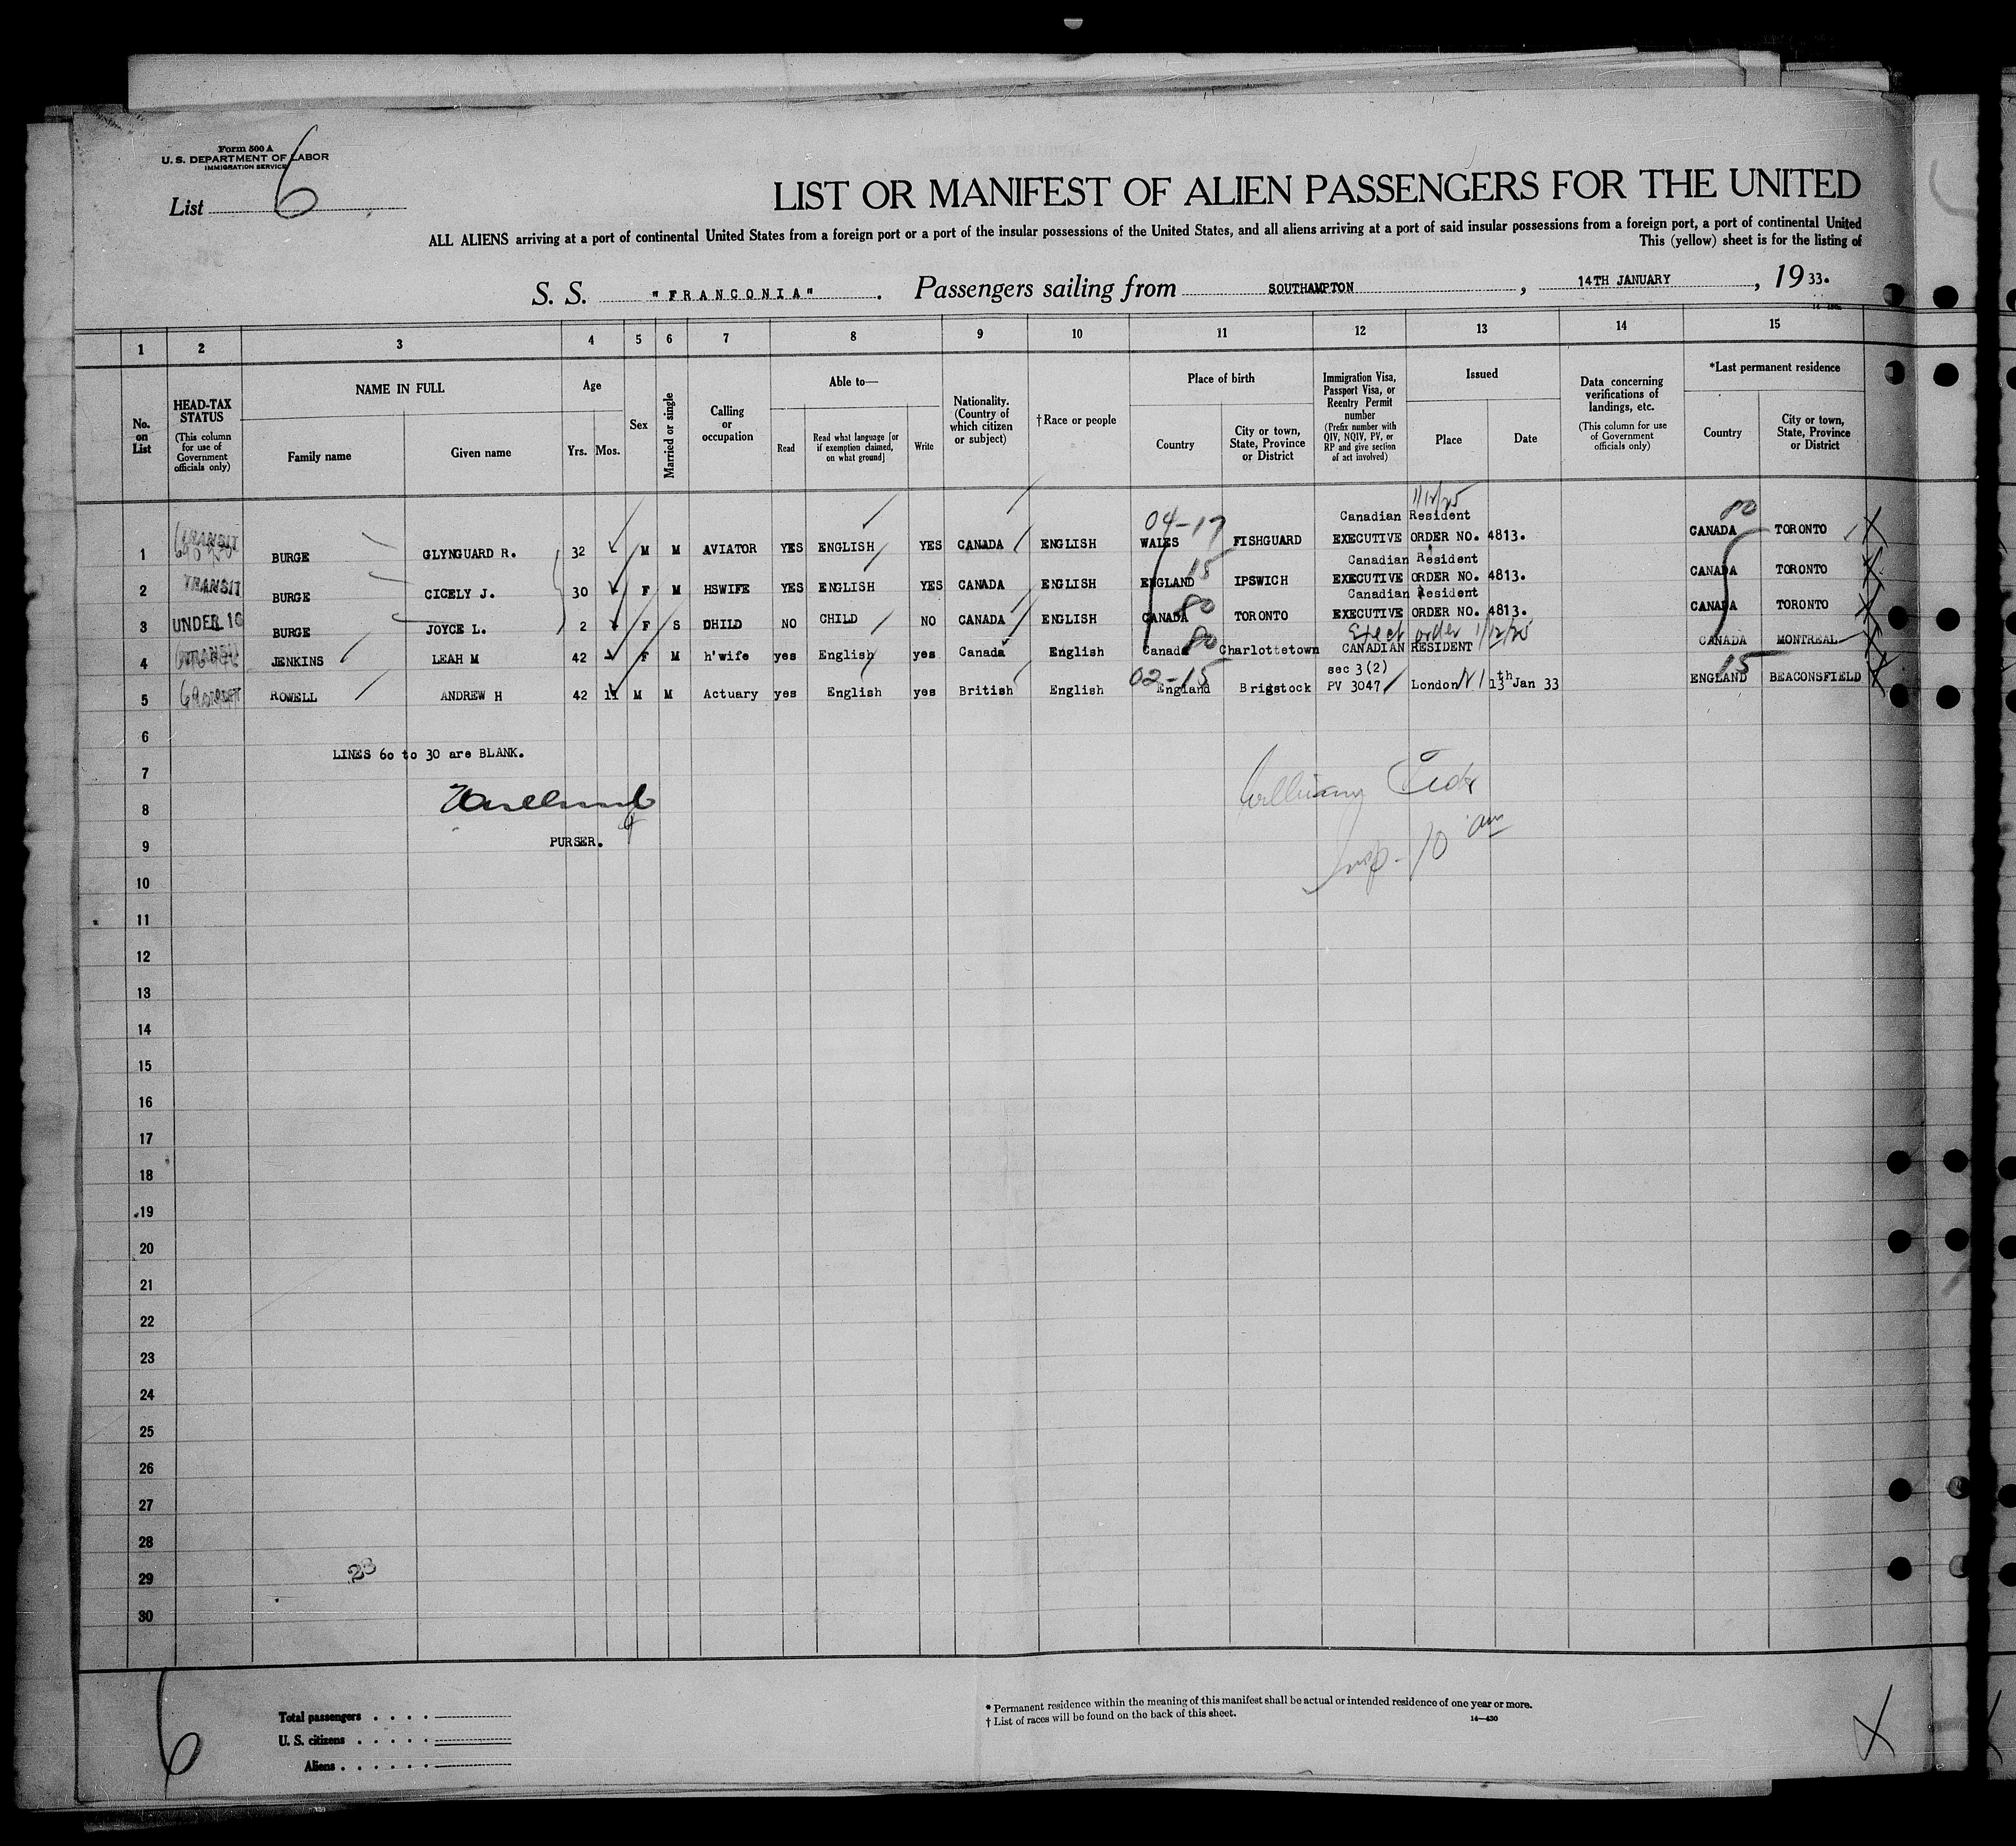 Form 500 A
U. S. DEPARTMENT OF LABOR
IMMIGRATION SERVICE
List 6
LIST OR MANIFEST OF ALIEN PASSENGERS FOR THE UNITED
ALL ALIENS arriving at a port of continental United States from a foreign port or a port of the insular possessions of the United States, and all aliens arriving at a port of said insular possessions from a foreign port, a port of continental United
This (yellow) sheet is for the listing of
S. S. "FRANCONIA". Passengers sailing from SOUTHAMPTON, 14TH JANUARY, 1933.
1 2 3 4 5 6 7 8 9 10 11 12 13 14 15
No. on List
HEAD-TAX STATUS (This column for use of Government officials only)
NAME IN FULL
Family name
Given name
Age
Yrs. Mos.
Sex
Married or single
Calling or occupation
Able to—
Read
Read what language [or if exemption claimed, on what ground]
Write
Nationality. (Country of which citizen or subject)
† Race or people
Place of birth
Country
City or town, State, Province or District
Immigration Visa, Passport Visa, or Reentry Permit number (Prefix number with QIV, NQIV, PV, or RP and give section of act involved)
Issued
Place
Date
Data concerning verifications of landings, etc. (This column for use of Government officials only)
*Last permanent residence
Country
City or town, State, Province or District
1/12/25
04-17 Canadian Resident 80
1 TRANSIT BURGE GLYNGUARD R. 32 M M AVIATOR YES ENGLISH YES CANADA ENGLISH WALES FISHGUARD EXECUTIVE ORDER NO. 4813. CANADA TORONTO
15 Canadian Resident
2 TRANSIT BURGE CICELY J. 30 F M HSWIFE YES ENGLISH YES CANADA ENGLISH ENGLAND IPSWICH EXECUTIVE ORDER NO. 4813. CANADA TORONTO
80 Canadian Resident
3 UNDER 16 BURGE JOYCE L. 2 F S DHILD NO CHILD NO CANADA ENGLISH CANADA TORONTO EXECUTIVE ORDER NO. 4813. CANADA TORONTO
80 Exect order 1/12/25
4 TRANSIT JENKINS LEAH M 42 F M h'wife yes English yes Canada English Canada Charlottetown CANADIAN RESIDENT CANADA MONTREAL
02-15 sec 3(2) 15
5 ROWELL ANDREW H 42 11 M M Actuary yes English yes British English England Brigstock PV 3047 London 13th Jan 33 ENGLAND BEACONSFIELD
6
LINES 6o to 30 are BLANK.
7
8
PURSER.
Insp - 10 am
9
10
11
12
13
14
15
16
17
18
19
20
21
22
23
24
25
26
27
28
23
29
30
6
Total passengers
U. S. citizens
Aliens
* Permanent residence within the meaning of this manifest shall be actual or intended residence of one year or more.
† List of races will be found on the back of this sheet.
14—430